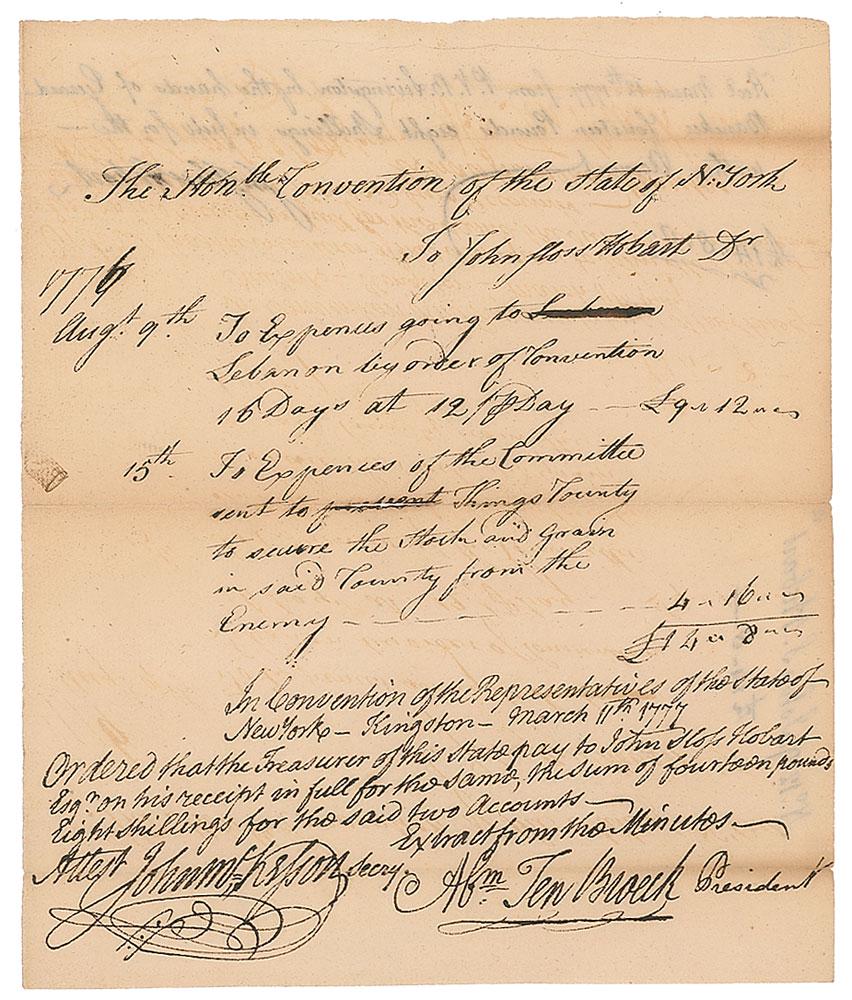 The Honble Convention of the State of N. York
To John Sloss Hobart Dr
1776
Augt 9th To Expences going to
Lebanon by order of Convention
16 Days at 12/ ⅌ Day — £9 " 12 " "
15th To Expences of the Committee
sent to Kings County
to secure the Stock and Grain
in said County from the
Enemy - - - - - - 4 " 16 " "
£14 " 8 " "
In Convention of the Representatives of the State of
New York - Kingston - March 11th 1777
Ordered that the Treasurer of this State pay to John Sloss Hobart
Esqr on his receipt in full for the same, the sum of fourteen pounds
Eight shillings for the said two Accounts —
Extract from the Minutes —
Attest John McKesson Secry.
Abm Ten Broeck President